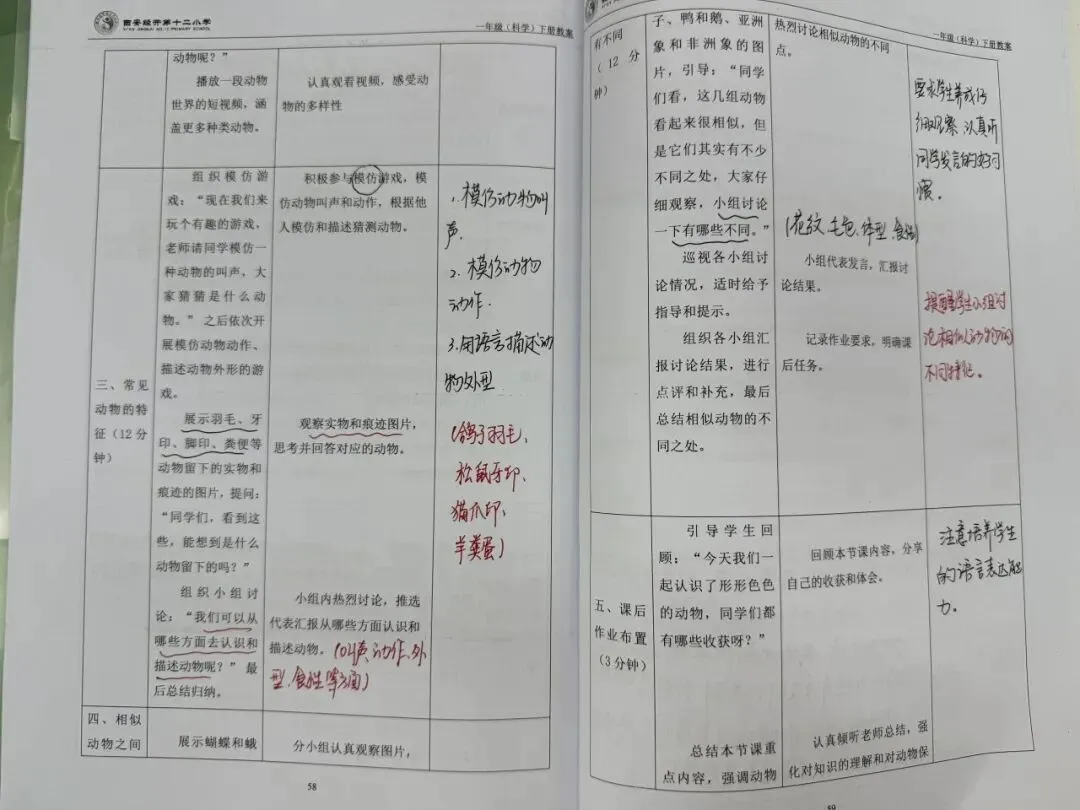 西安经开第十二小学
一年级（科学）下册教案
动物呢？”
播放一段动物
世界的短视频，涵
盖更多种类动物。
认真观看视频，感受动
物的多样性
三、常见
动物的特
征（12分
钟）
组织模仿游
戏：“现在我们来
玩个有趣的游戏，
老师请同学模仿一
种动物的叫声，大
家猜猜是什么动
物。” 之后依次开
展模仿动物动作、
描述动物外形的游
戏。
展示羽毛、牙
印、脚印、粪便等
动物留下的实物和
痕迹的图片，提问：
“同学们，看到这
些，能想到是什么
动物留下的吗？”
组织小组讨
论：“我们可以从
哪些方面去认识和
描述动物呢？” 最
后总结归纳。
积极参与模仿游戏，模
仿动物叫声和动作，根据他
人模仿和描述猜测动物。
观察实物和痕迹图片，
思考并回答对应的动物。
小组内热烈讨论，推选
代表汇报从哪些方面认识和
描述动物。（叫声、动作、外
型、食性等方面）
1.模仿动物叫
声.
2.模仿动物
动作.
3.用语言描述动
物外型
（鸽子羽毛、
松鼠牙印、
猫爪印、
羊粪蛋）
四、相似
动物之间
展示蝴蝶和蛾
分小组认真观察图片，
58
一年级（科学）下册教案
有不同
（12 分
钟）
子、鸭和鹅、亚洲
象和非洲象的图
片，引导：“同学
们看，这几组动物
看起来很相似，但
是它们其实有不少
不同之处，大家仔
细观察，小组讨论
一下有哪些不同。”
巡视各小组讨
论情况，适时给予
指导和提示。
组织各小组汇
报讨论结果，进行
点评和补充，最后
总结相似动物的不
同之处。
热烈讨论相似动物的不同
点。
（花纹、毛色、体型、食性）
小组代表发言，汇报讨
论结果。
记录作业要求，明确课
后任务。
要求学生养成仔
细观察、认真听
同学发言的好习
惯。
提醒学生小组讨
论相似动物的
不同特征。
五、课后
作业布置
（3分钟）
引导学生回
顾：“今天我们一
起认识了形形色色
的动物，同学们都
有哪些收获呀？”
总结本节课重
点内容，强调动物
回顾本节课内容，分享
自己的收获和体会。
认真倾听老师总结，强
化对知识的理解和对动物保
注意培养学生
的语言表达能
力。
59